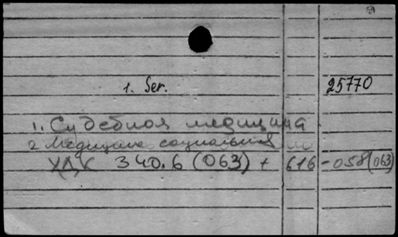 1. Ser. 25770
1. Судебная медицина
2 Медицина социальная
УДК 340.6 (063) + 616-058(063)